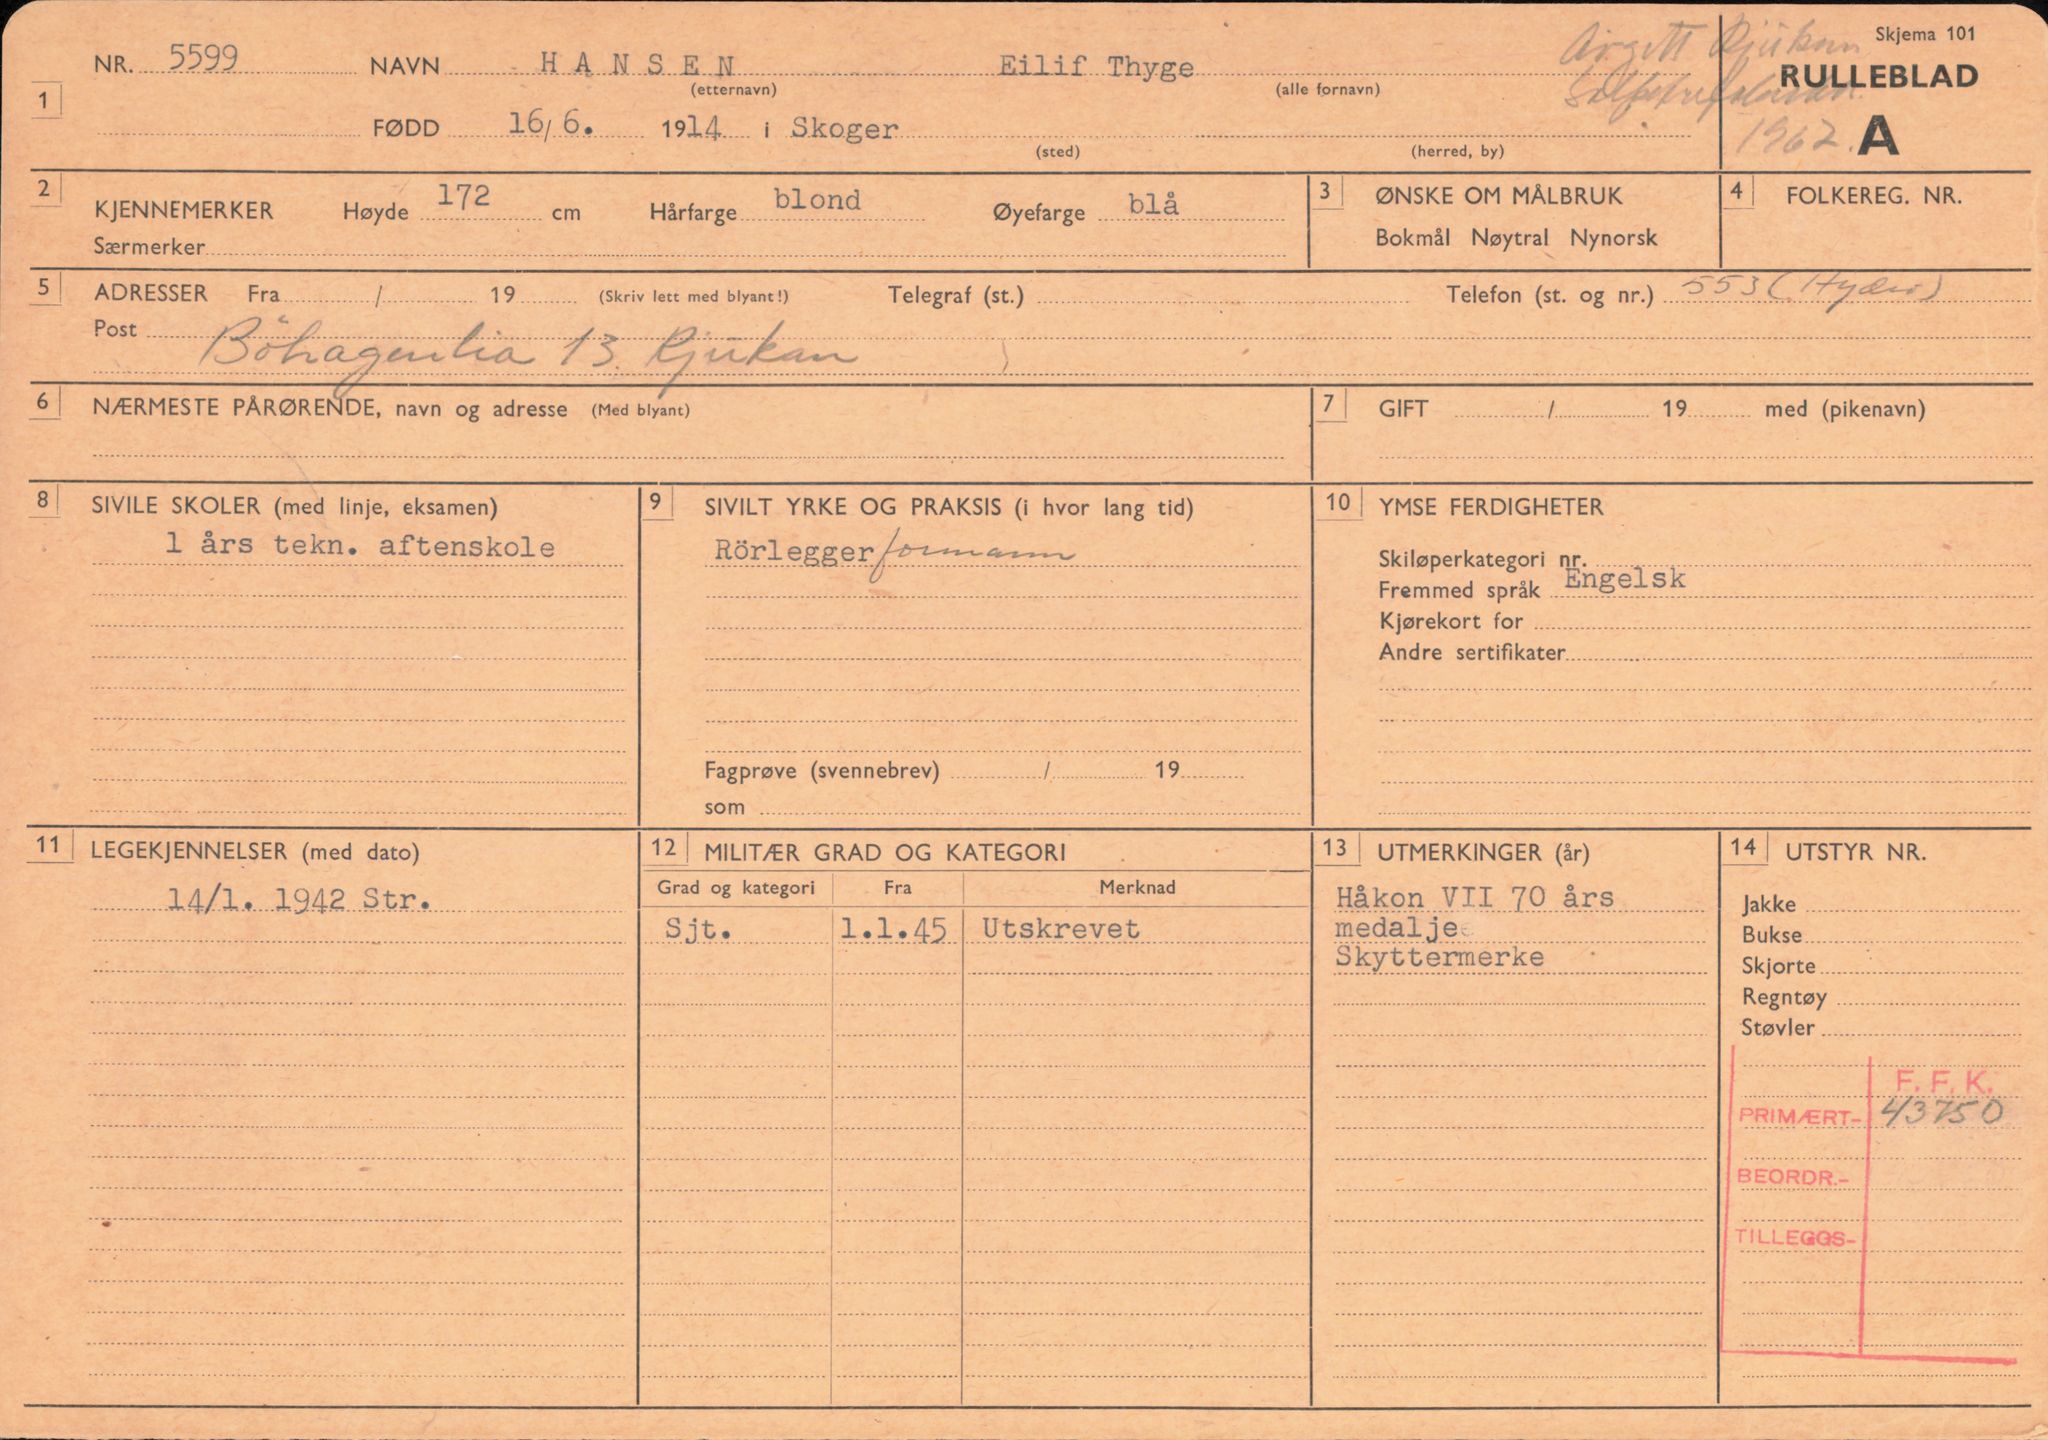 Skjema 101
NR. 5599 NAVN HANSEN Eilif Thyge Rjukan RULLEBLAD
(etternavn) (alle fornavn)
1
FØDD 16/6. 1914 i Skoger 1962. A
(sted) (herred, by)
2 KJENNEMERKER Høyde 172 cm Hårfarge blond Øyefarge blå
Særmerker
3 ØNSKE OM MÅLBRUK
Bokmål Nøytral Nynorsk
4 FOLKEREG. NR.
5 ADRESSER Fra / 19 (Skriv lett med blyant!) Telegraf (st.) Telefon (st. og nr.) 553 (Hydro)
Post Böhagenlia 13 Rjukan
6 NÆRMESTE PÅRØRENDE, navn og adresse (Med blyant)
7 GIFT / 19 med (pikenavn)
8 SIVILE SKOLER (med linje, eksamen)
1 års tekn. aftenskole
9 SIVILT YRKE OG PRAKSIS (i hvor lang tid)
Rörlegger formann
Fagprøve (svennebrev) / 19
som
10 YMSE FERDIGHETER
Skiløperkategori nr.
Fremmed språk Engelsk
Kjørekort for
Andre sertifikater
11 LEGEKJENNELSER (med dato)
14/1. 1942 Str.
12 MILITÆR GRAD OG KATEGORI
Grad og kategori Fra Merknad
Sjt. 1.1.45 Utskrevet
13 UTMERKINGER (år)
Håkon VII 70 års
medalje
Skyttermerke
14 UTSTYR NR.
Jakke
Bukse
Skjorte
Regntøy
Støvler
F. F. K.
PRIMÆRT- 43750
BEORDR.-
TILLEGGS-